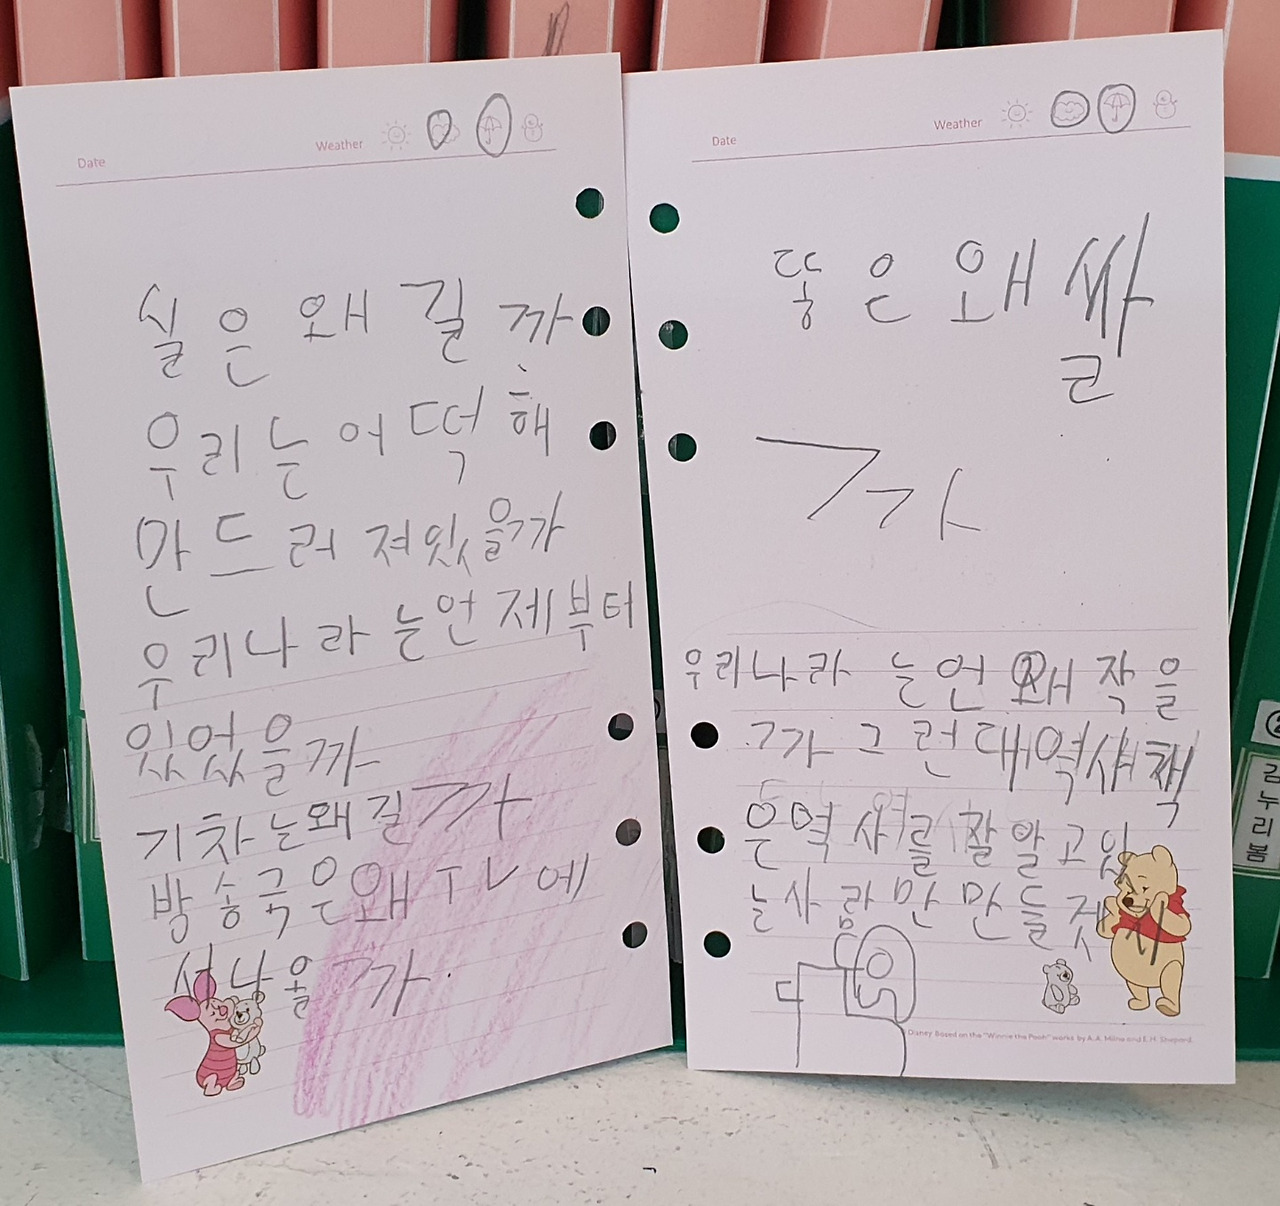 Date Weather
실은왜길까
우리는어떡해
만드러져있을까
우리나라는언제부터
있었을까
기차는왜길까
방송국은왜 TV에
서나올까.
Date Weather
똥은왜쌀
까
우리나라는언 왜작을
까그런대역사책
은역사를잘알고있
는사람만만들젓
다
Disney Based on the "Winnie the Pooh" works by A.A. Milne and E.H. Shepard.
김누리봄